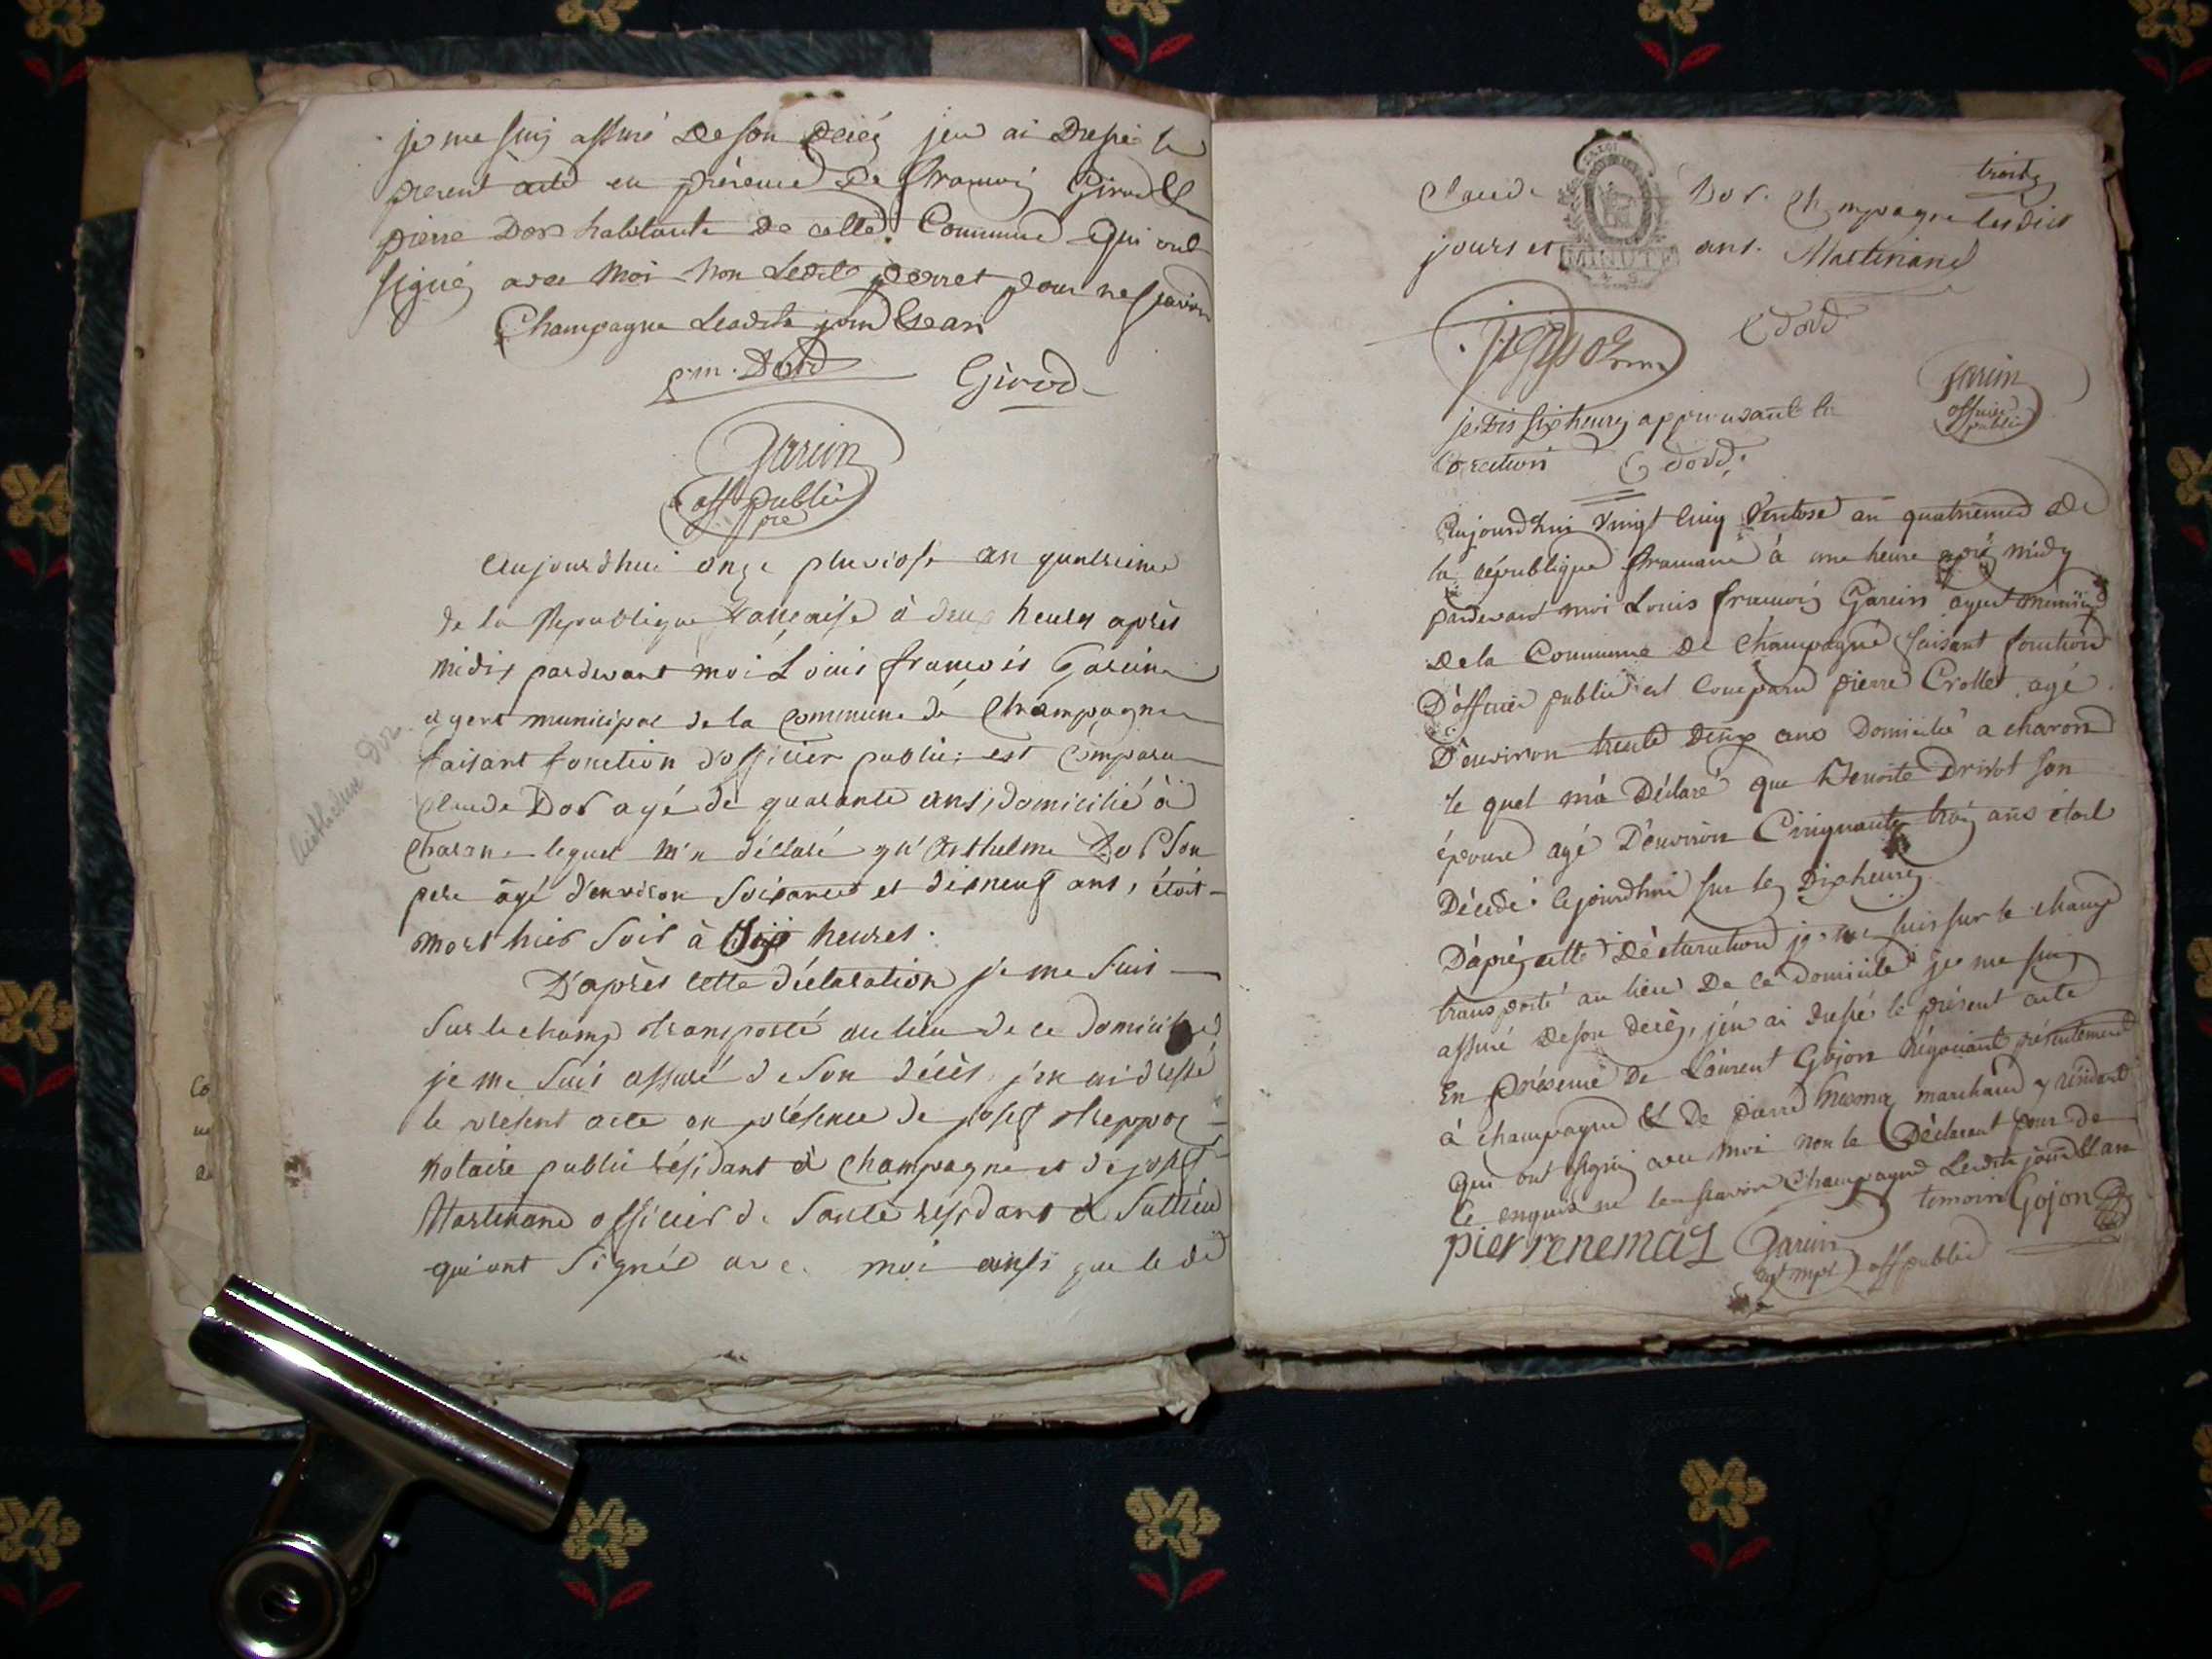 je me suis assuré de son décés j'en ai dressé le
présent acte en présence de francois Girod &
pierre Dor habitants de cette Commune qui ont
signé avec moi non ledit perret pour ne scavoir
Champagne lesdits jour & an
p.m. Dord
Girod
Garin
off public
Aujourdhui onze pluviose an quatrieme
de la Republique française à deux heures après
midi, pardevant moi Louis françois Garin
agent municipal de la commune de Champagne
faisant fonction d'officier public; est comparu
claude Dor agé de quarante ans, domicilié à
charon lequel m'a déclaré qu'Anthelme Dor son
pere âgé d'environ soixante et dixneuf ans, étoit
mort hier soir à six heures.
D'après cette déclaration je me suis
sur le champ transporté au lieu de ce domicile
je me suis assuré de son décès, j'en ai dressé
le présent acte en présence de josef
notaire public résidant à champagne et de josef
Martinand officier de santé résidant à Sutrieu
qui ont signés avec moi ainsi que le dit
Anthelme Dor
trente
claude Dor. Champagne lesdits
jours et ans. Martinand
MINUTE
C dord
Garin
officier
public
je dis six heures approuvant la
Corection C dord
Aujourdhui vingt cinq Ventose an quatrieme de
la république francaise à une heure après midy
pardevant moi Louis francois Garin agent municipal
de la Commune de Champagne faisant fonction
D'officier public est comparu pierre Crollet agé
D'environ trente deux ans domicilié a charon
le quel m'a déclaré que Benoite Drivot son
épouse agé D'environ Cinquante trois ans étoit
Décédé cejourdhui sur les Dix heures
D'après cette Déclaration je me suis sur le champ
transporté au lieu de ce domicile je me suis
assuré de son decès, j'en ai dressé le présent acte
En présence de Laurent Gojon négociant présentement
à champagne & de pierre marchand y résidant
qui ont signé avec moi non le Déclarant pour de
ce enquis ne le scavoir Champagne lesdits jour & an
temoin Gojon
pierrenemaz
Garin
agt mpl off public